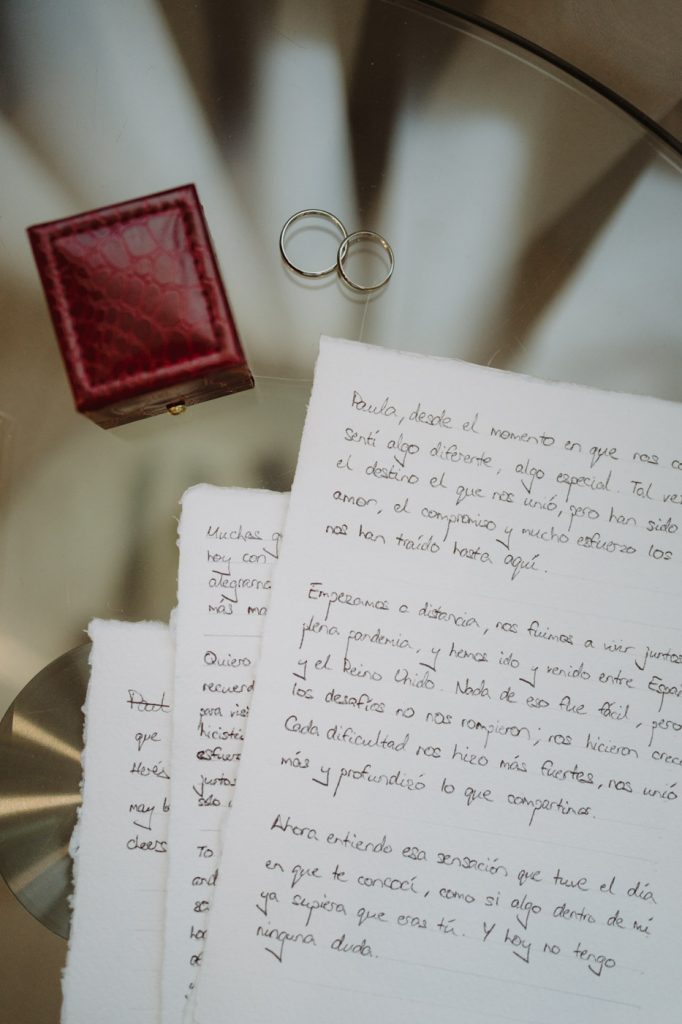 Paula, desde el momento en que nos co
sentí algo diferente, algo especial. Tal vez
el destino el que nos unió, pero han sido
amor, el compromiso y mucho esfuerzo los
nos han traído hasta aquí.
Empezamos a distancia, nos fuimos a vivir juntos
plena pandemia, y hemos ido y venido entre Espa
y el Reino Unido. Nada de eso fue fácil, pero
los desafíos no nos rompieron; nos hicieron crece
Cada dificultad nos hizo más fuertes, nos unió
más y profundizó lo que compartimos.
Ahora entiendo esa sensación que tuve el día
en que te conocí, como si algo dentro de mí
ya supiera que eras tú. Y hoy no tengo
ninguna duda.
Muchas g
hoy con
alegrarna
más ma
Quiero
recuerd
para visi
hicistei
esfuerz
juntos
sólo
To
and
Paul
que
Herés
may b
cheers